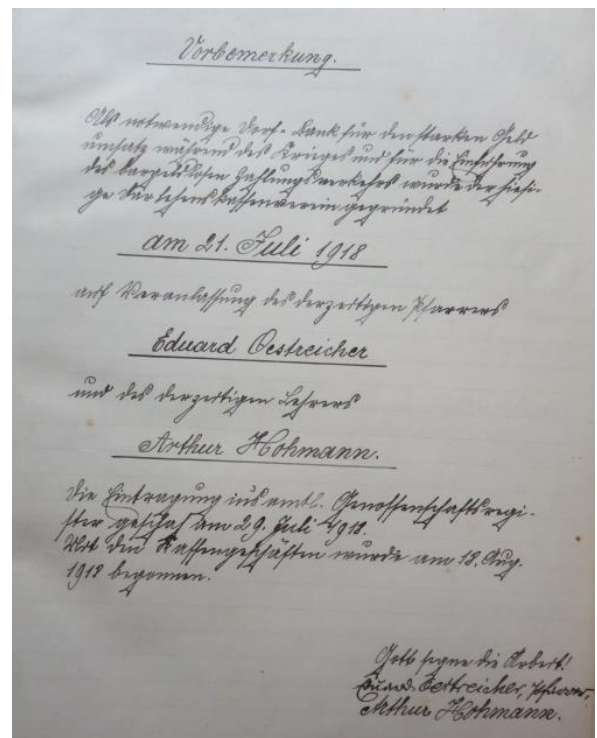 Vorbemerkung.
Als notwendige Dorf-Bank für den starken Geld
umsatz während des Krieges und für die Einführung
des bargeldlosen Zahlungsverkehrs wurde der hiesi-
ge Darlehenskassenverein gegründet
am 21. Juli 1918
auf Veranlassung des derzeitigen Pfarrers
Eduard Oestreicher
und des derzeitigen Lehrers
Arthur Hohmann.
Die Eintragung ins amtl. Genossenschaftsregi-
ster geschah am 29. Juli 1918.
Mit den Kassengeschäften wurde am 18. Aug.
1918 begonnen.
Gott segne die Arbeit!
Eduard Oestreicher, Pfarrer,
Arthur Hohmann.